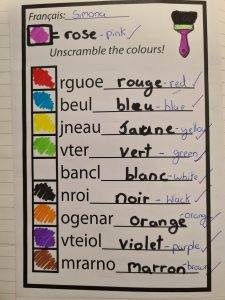 Français: Simona
= rose - pink
Unscramble the colours!
rguoe rouge - red
beul bleu - blue
jneau Jaune - yellow
vter vert - green
bancl blanc - white
nroi noir - black
ogenar orange - orange
vteiol violet - purple
mrarno marron - brown